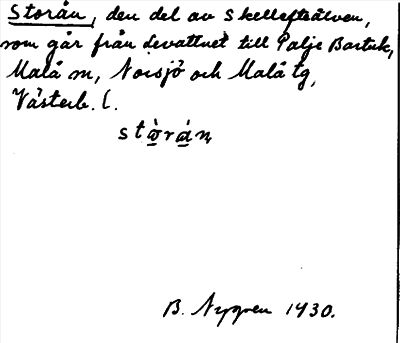 Storån, den del av Skellefteälven,
som går från Levattnet till Palje Bartuk,
Malå m, Norsjö och Malå tg,
Västerb. l.
stòrán
B. Nygren 1930.